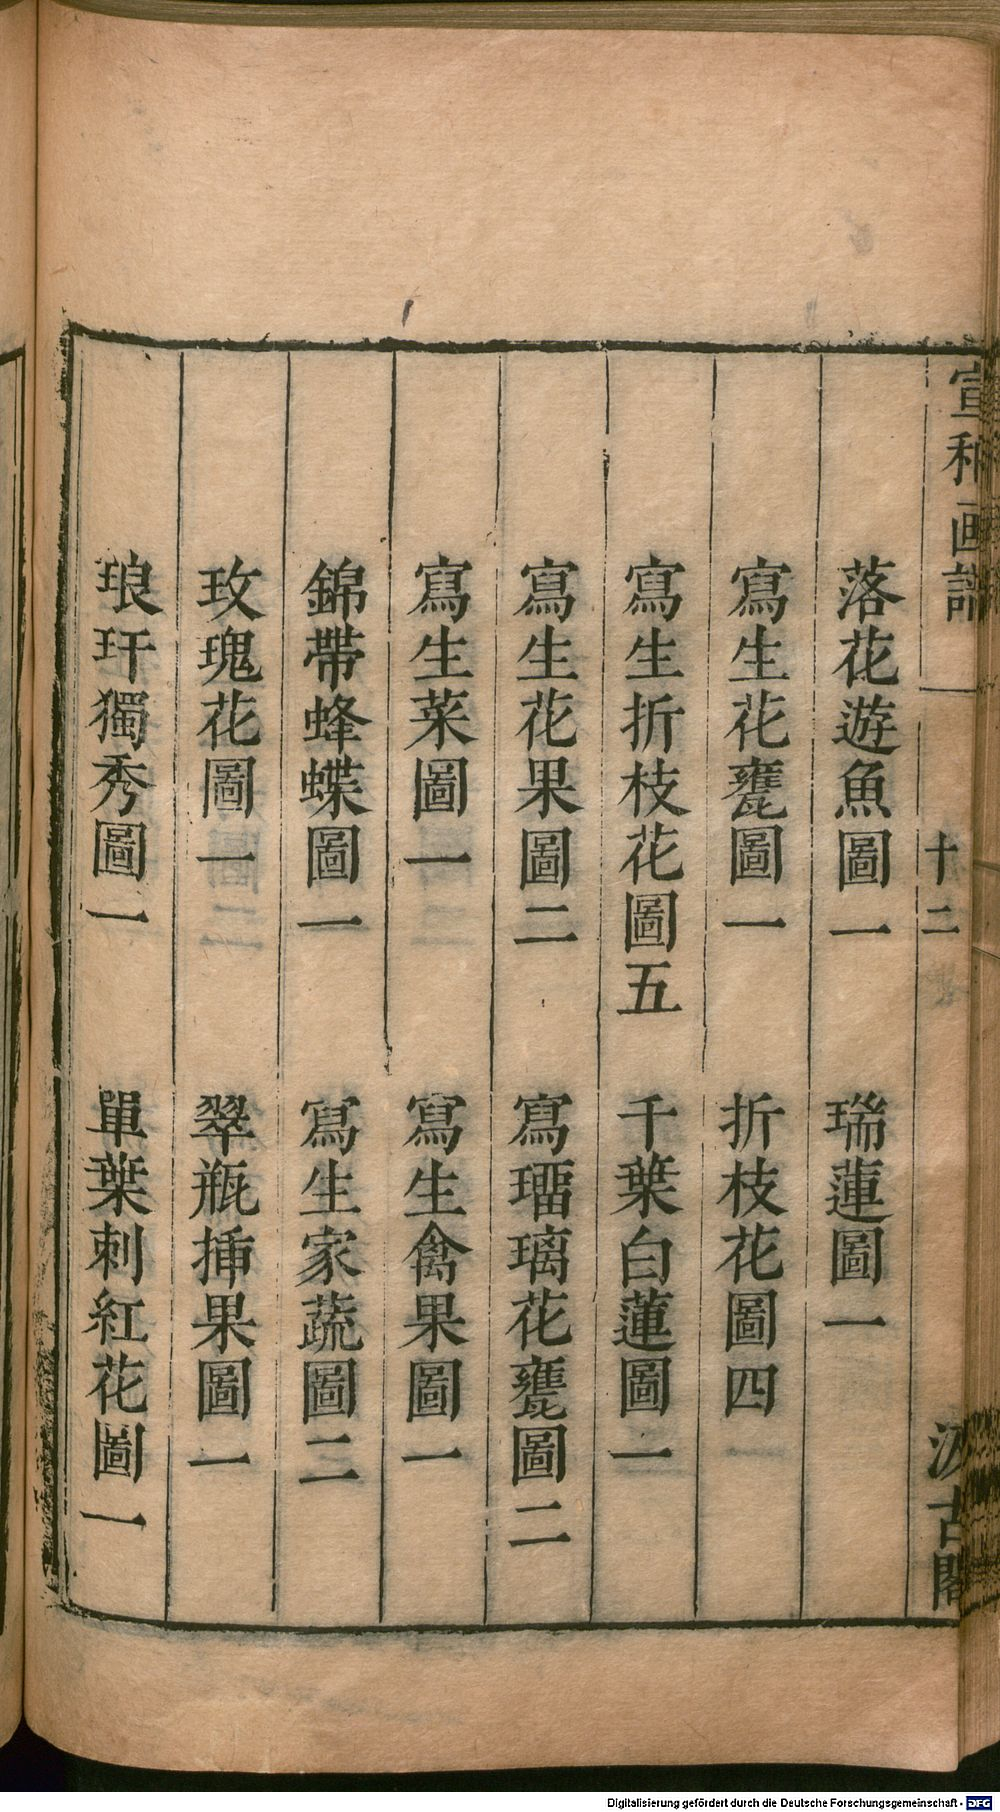 宣和画譜 十二 汲古閣
落花遊魚圖一 瑞蓮圖一
寫生花甕圖一 折枝花圖四
寫生折枝花圖五 千葉白蓮圖一
寫生花果圖二 寫瑠璃花甕圖二
寫生菜圖一 寫生禽果圖一
錦帶蜂蝶圖一 寫生家蔬圖二
玫瑰花圖一 翠瓶揷果圖一
琅玕獨秀圖一 單葉刺紅花圖一
Digitalisierung gefördert durch die Deutsche Forschungsgemeinschaft - DFG